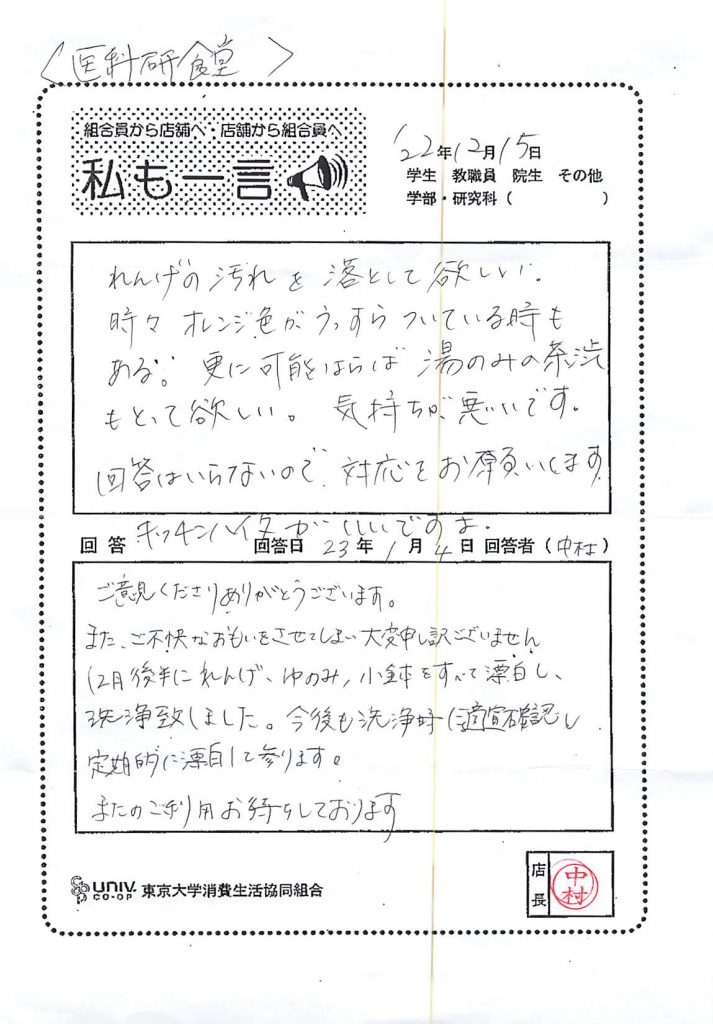 〈医科研食堂〉
組合員から店舗へ・店舗から組合員へ
私も一言
'22年12月15日
学生 教職員 院生 その他
学部・研究科( )
れんげの汚れを落として欲しい。
時々オレンジ色がうっすらついている時も
ある。更に可能ならば湯のみの茶渋
もとって欲しい。気持ちが悪いです。
回答はいらないので、対応をお願いします
キッチンハイターがいいですよ。
回答 回答日 23年1月4日 回答者(中村)
ご意見くださりありがとうございます。
また、ご不快なおもいをさせてしまい大変申し訳ございません
12月後半にれんげ、ゆのみ、小鉢をすべて漂白し、
洗浄致しました。今後も洗浄時に適宜確認し
定期的に漂白して参ります。
またのご利用お待ちしております
UNIV. CO-OP 東京大学消費生活協同組合
店長 中村